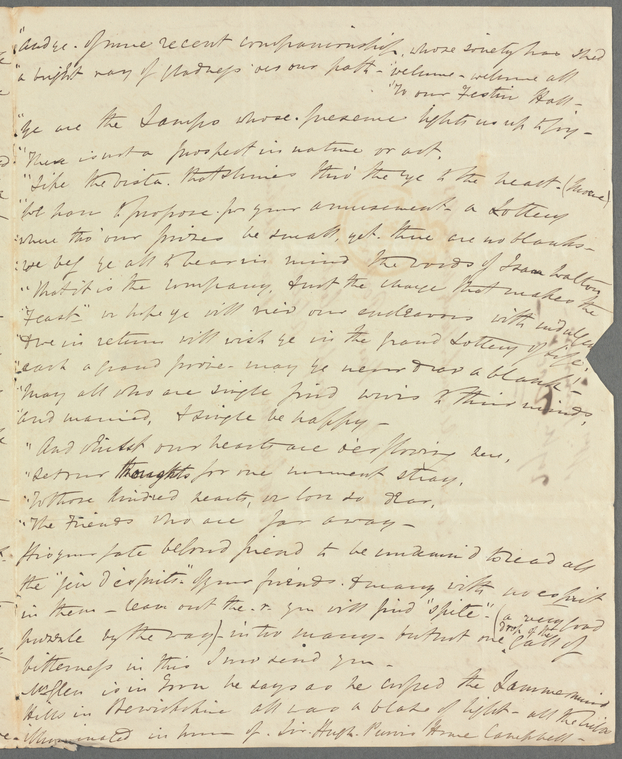 "And ye. of more recent companionship, whose society has shed
"a bright ray of gladness o'er our path - "welcome - welcome all
"To our Festive Hall -
"Ye are the Lamps whose presence lights us up to joy -
"There is not a prospect in nature or art,
"Like the vista. that shines thro' the eye to the heart - (Moore)
"We have to propose for your amusement a Lottery
"where tho' our prizes be small, yet there are no blanks -
"we beg ye all to bear in mind the words of Isaac Walton
"That it is the company, & not the charge that makes the
"Feast" we hope ye will view our endeavors with indulgence
"& we in return will wish ye in the grand Lottery of life,
"each a grand prize - may ye never draw a blank -
"may all who are single find wives to their minds,
"and married, & single be happy -
"And whilst our hearts are o'erflowing here,
"Let our thoughts for one moment stray,
"To those kindred hearts, we love so dear,
"The Friends who are far away -
It is your fate beloved friend to be to read all
the "jeu d'esprits" of your friends. & many with no esprit
in them - leave out the. r. you will find "spite" - (a very good
puzzle by the way) - in too many - but not one drop of the Gall of
bitterness in this I now send you -
McGlen is in Town he says as he crossed the Lammermuir
Hills in Berwickshire all was a blaze of light - all the
illuminated in honor of. Sir Hugh Purvis Hume Campbell -